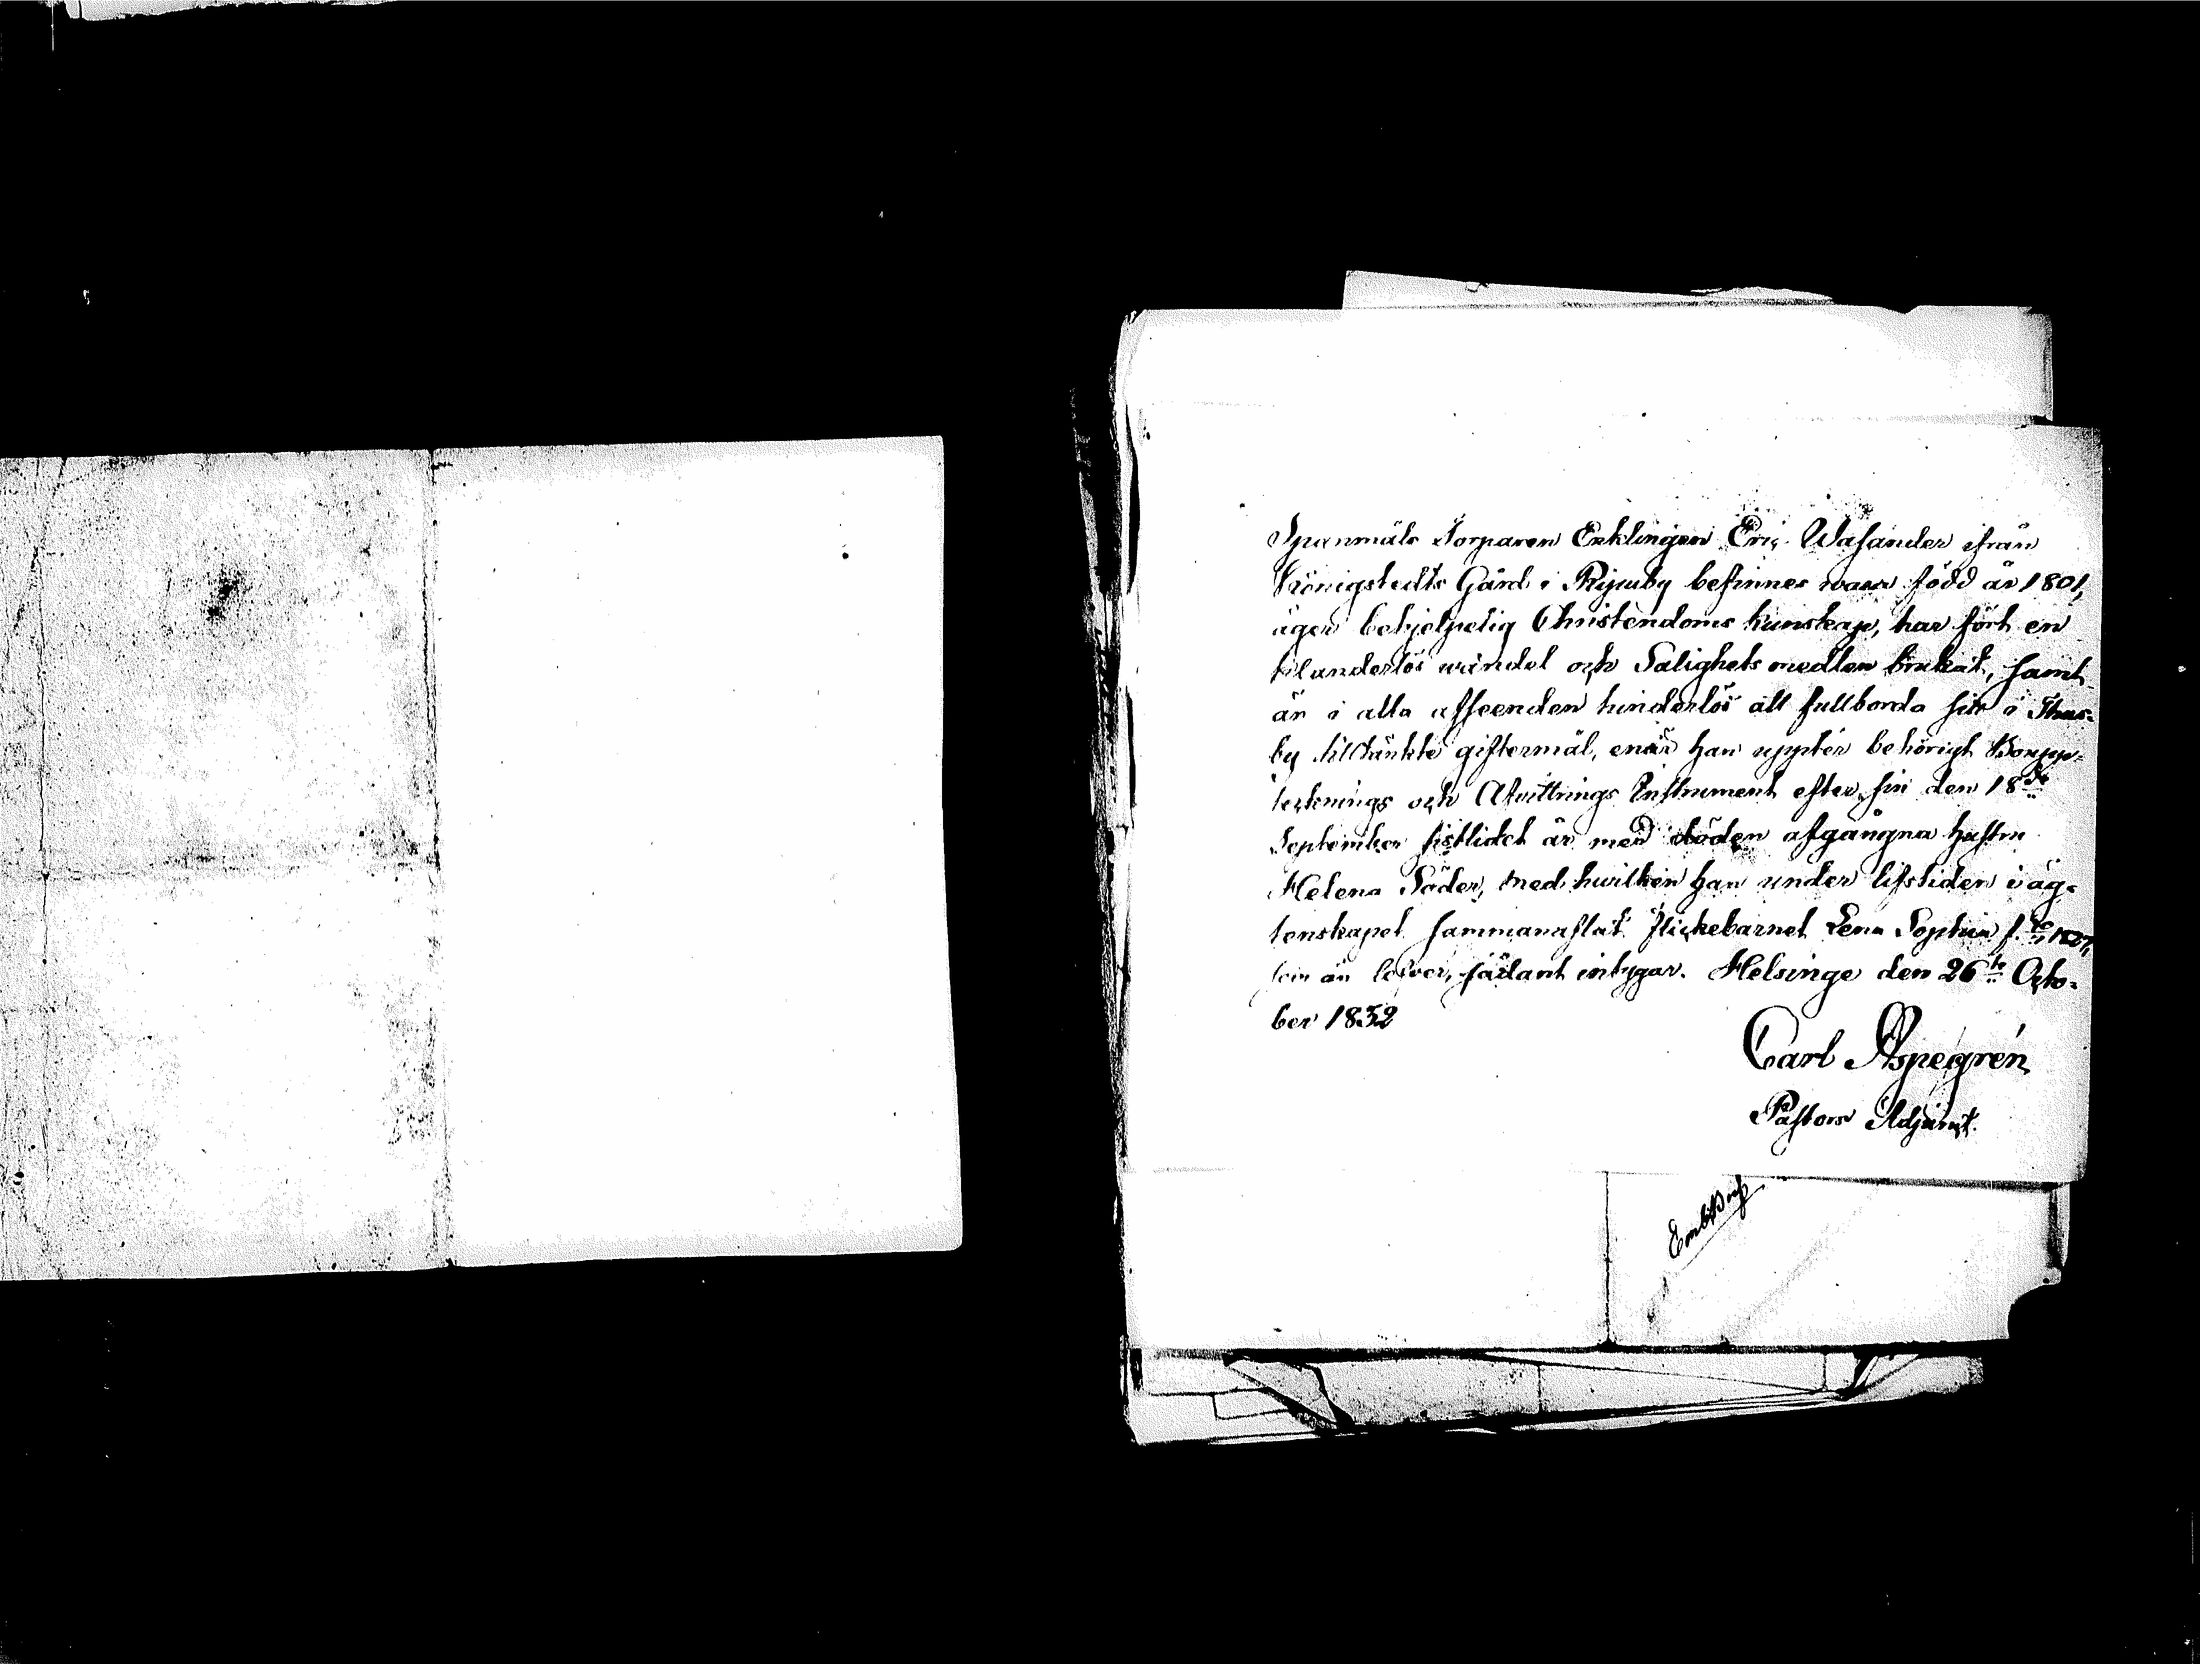 Spanmåls Torparen Enklingen Eric Wasander ifrån
Königstedts Gård i Ripuby befinnes vara född år 1801,
äger behjelpelig Christendoms kunskap, har fört en
klanderlös vandel och Salighets medlen brukat, samt
är i alla afseenden hinderlös att fullborda sitt i Thus-
by tilltänkte giftermål, enär han uppter behörigt Boupp-
tecknings och Afvittrings Instrument efter sin den 18de
September sistlidet år med döden afgångna hustru
Helena Söder, med hvilken han under lifstiden i äg-
tenskapet sammanaflat flickebarnet Lena Sophia f. 1827,
som än lefver, sådant intygar. Helsinge den 26te Octo-
ber 1832
Carl Aspegrén
Pastors Adjunct.